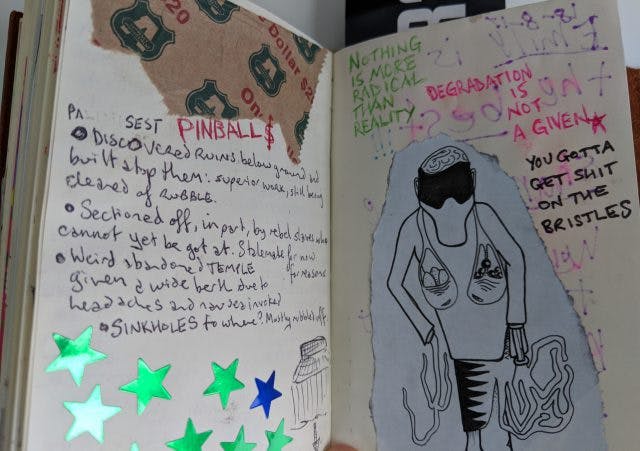 $20
Dollar $2
On
PA SEST PINBALL$
DISCOVERED RUINS. below ground and
built atop them: superior work, still being
cleared of RUBBLE.
Sectioned off, in part, by rebel slaves who
cannot yet be got at. Stalemate for now
for reasons
Weird abandoned TEMPLE
given a wide berth due to
headaches and nausea invoked
SINKHOLES to where? Mostly rubbled off
NOTHING
IS MORE
RADICAL
THAN
REALITY
!!!
DEGRADATION
IS
NOT
A GIVEN
YOU GOTTA
GET SHIT
ON THE
BRISTLES